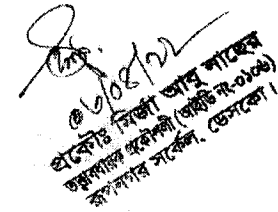 ০৬/০৪/২২
প্রকৌঃ মির্জা আবু নাছের
তত্ত্বাবধায়ক প্রকৌশলী (আইডি নং-০১০৬)
রূপনগর সার্কেল, ডেসকো।